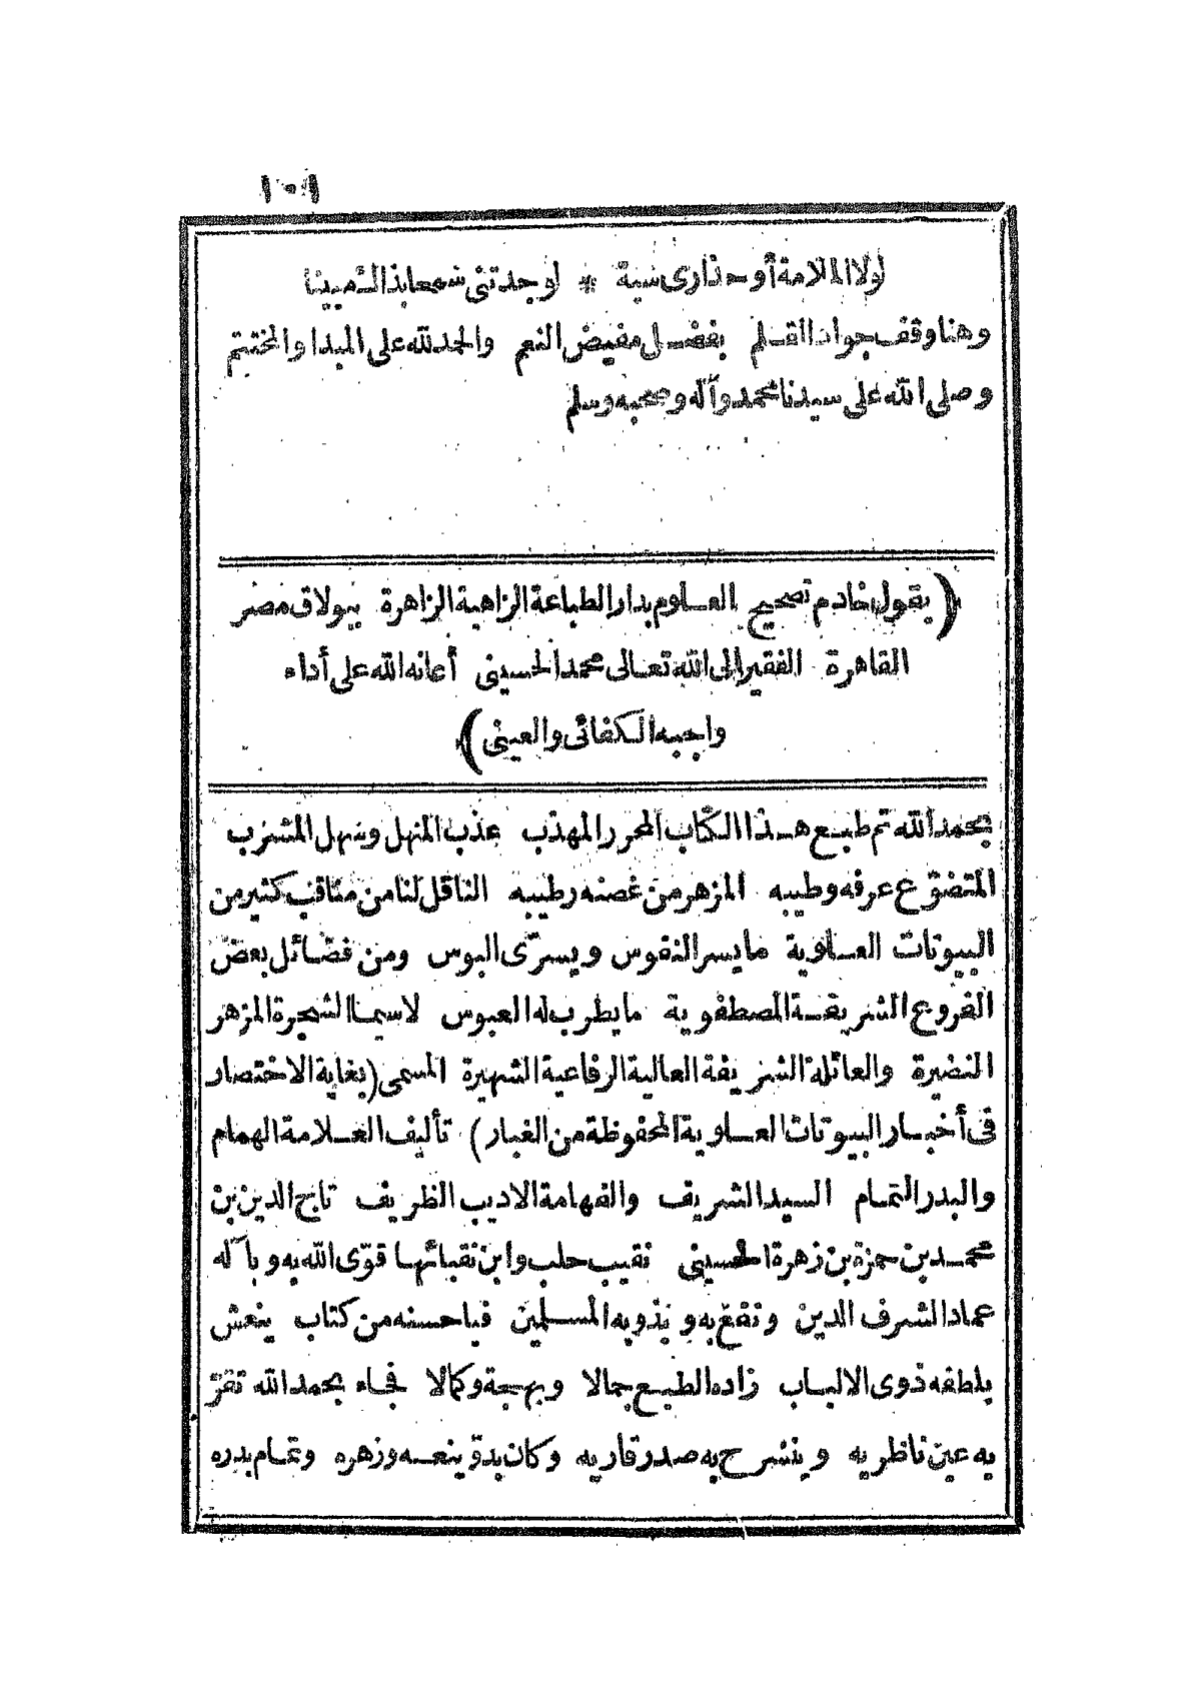 ١٠١
لولا الملامة أو حذارى سبة * لوجدتنى سمحا بذاك مبينا
وهنا وقف جواد القلم بفضل مفيض النعم والحمد لله على المبدا والمختتم
وصلى الله على سيدنا محمد وآله وصحبه وسلم
(يقول خادم تصحيح العلوم بدار الطباعة الزاهية الزاهرة ببولاق مصر
القاهرة الفقير الى الله تعالى محمد الحسينى أعانه الله على أداء
واجبه الكفائى والعينى)
بحمد الله تم طبع هذا الكتاب المحرر المهذب عذب المنهل وسهل المشرب
المتضوّع عرفه وطيبه المزهر من غصنه رطيبه الناقل لنا من مناقب كثير من
البيوتات العلوية ما يسر النفوس ويسرّى البوس ومن فضائل بعض
الفروع الشريفة المصطفوية ما يطرب له العبوس لاسيما الشجرة المزهر
النضيرة والعائلة الشريفة العالية الرفاعية الشهيرة المسمى (بغاية الاختصار
فى أخبار البيوتات العلوية المحفوظة من الغبار) تأليف العلامة الهمام
والبدر التمام السيد الشريف والفهامة الاديب الظريف تاج الدين بن
محمد بن حمزة بن زهرة الحسينى نقيب حلب وابن نقبائها قوّى الله به وبآله
عماد الشرف الدين ونفع به وبذويه المسلمين فيا حسنه من كتاب ينعش
بلطفه ذوى الالباب زاده الطبع جمالا وبهجة وكمالا فجاء بحمد الله تقرّ
به عين ناظريه وينشرح به صدر قاريه وكان بدوّ ينعه وزهره وتمام بدره